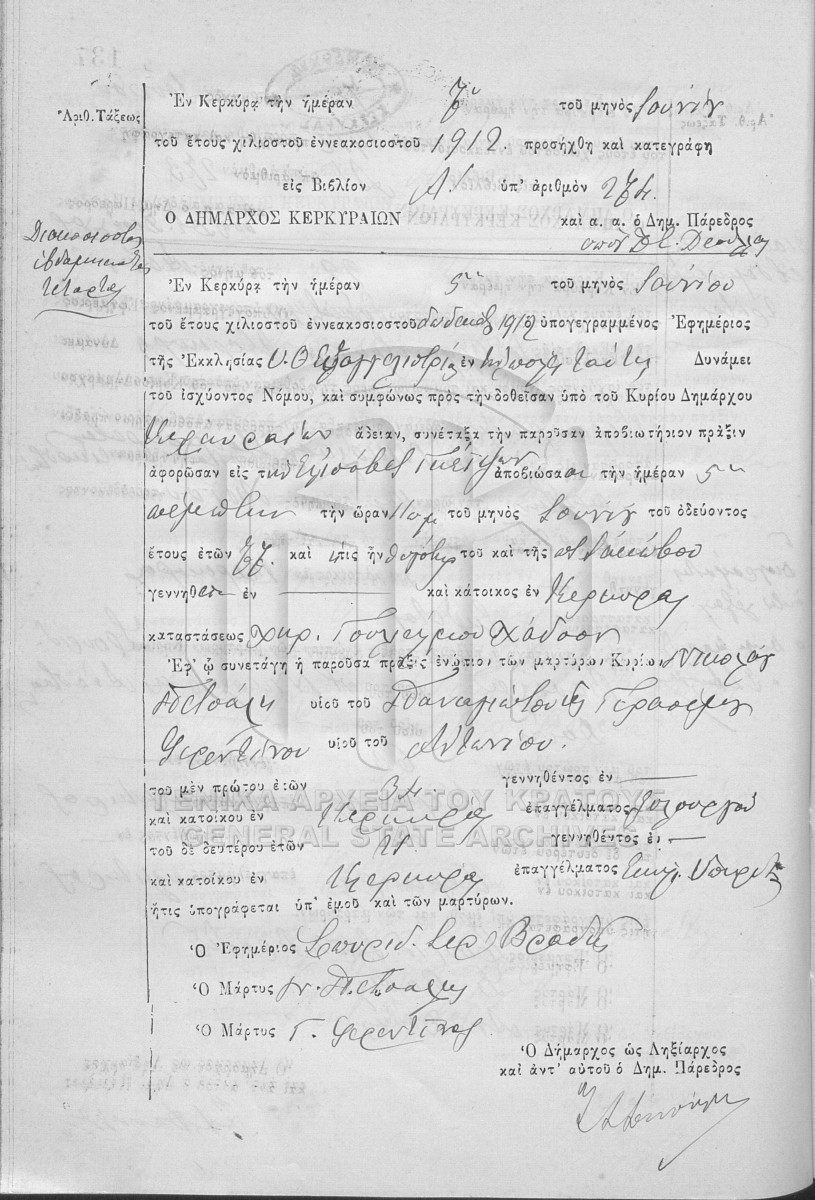 Ἀριθ. Τάξεως
Ἐν Κερκύρᾳ τὴν ἡμέραν 7ῃ τοῦ μηνὸς Ἰουνίου
τοῦ ἔτους χιλιοστοῦ ἐννεακοσιοστοῦ 1912. προσήχθη καὶ κατεγράφη
εἰς Βιβλίον Α. ὑπ' ἀριθμὸν 274.
Ο ΔΗΜΑΡΧΟΣ ΚΕΡΚΥΡΑΙΩΝ καὶ α. α. ὁ Δημ. Πάρεδρος
Διακοσιοστὸς
ἑβδομηκοστὸς
τέταρτος
Ἐν Κερκύρᾳ τὴν ἡμέραν 5ην τοῦ μηνὸς Ἰουνίου
τοῦ ἔτους χιλιοστοῦ ἐννεακοσιοστοῦ δωδεκάτου 1912 ὁ ὑπογεγραμμένος Ἐφημέριος
τῆς Ἐκκλησίας Υ. Θ. Εὐαγγελιστρίας ἐν τῇ πόλει ταύτῃ Δυνάμει
τοῦ ἰσχύοντος Νόμου, καὶ συμφώνως πρὸς τὴν δοθεῖσαν ὑπὸ τοῦ Κυρίου Δημάρχου
Κερκυραίων ἄδειαν, συνέταξα τὴν παροῦσαν ἀποβιωτήριον πρᾶξιν
ἀφορῶσαν εἰς τὴν Ἐλισάβετ ἀποβιώσασαν τὴν ἡμέραν 5ην
πέμπτην τὴν ὥραν 11 πμ τοῦ μηνὸς Ἰουνίου τοῦ ὁδεύοντος
ἔτους ἐτῶν 77. καὶ ἥτις ἦν θυγάτηρ τοῦ καὶ τῆς Ἰακώβου
γεννηθεῖσα ἐν καὶ κάτοικος ἐν Κερκύρᾳ
καταστάσεως χηρ.
Ἐφ' ᾧ συνετάγη ἡ παροῦσα πρᾶξις ἐνώπιον τῶν μαρτύρων Κυρίων Νικολάου
Πετσάλη υἱοῦ τοῦ Παναγιώτου καὶ Γερασίμου
Φερεντίνου υἱοῦ τοῦ Ἀντωνίου.
τοῦ μὲν πρώτου ἐτῶν 34. γεννηθέντος ἐν
καὶ κατοίκου ἐν Κερκύρᾳ ἐπαγγέλματος ξυλουργοῦ
τοῦ δὲ δευτέρου ἐτῶν 21 γεννηθέντος ἐν
καὶ κατοίκου ἐν Κερκύρᾳ ἐπαγγέλματος
ἥτις ὑπογράφεται ὑπ' ἐμοῦ καὶ τῶν μαρτύρων.
Ὁ Ἐφημέριος Σπυρίδ. Ἱερ. Βραδῆς
Ὁ Μάρτυς Ν. Πετσάλης
Ὁ Μάρτυς Γ. Φερεντίνος
Ὁ Δήμαρχος ὡς Ληξίαρχος
καὶ ἀντ' αὐτοῦ ὁ Δημ. Πάρεδρος
ΓΕΝΙΚΑ ΑΡΧΕΙΑ ΤΟΥ ΚΡΑΤΟΥΣ
GENERAL STATE ARCHIVES